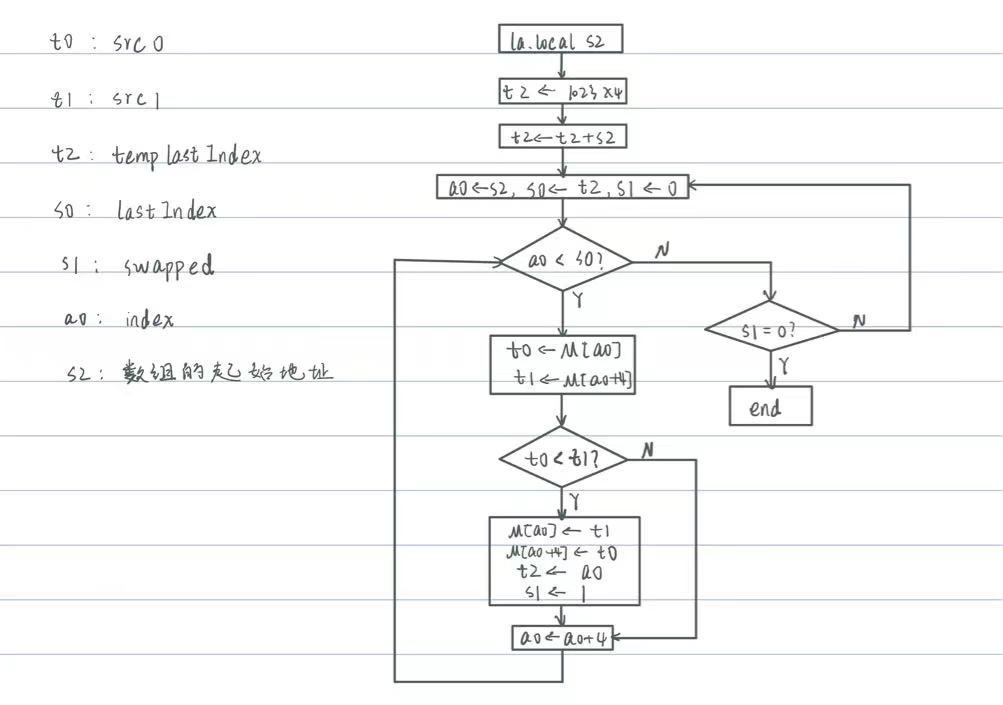 t0 : src 0
t1 : src 1
t2 : temp last Index
s0 : last Index
s1 : swapped
a0 : index
s2 : 数组的起始地址
la.local s2
t2 ← 1023×4
t2←t2+s2
a0←s2, s0← t2, s1 ← 0
a0 < s0?
N
Y
s1 = 0?
N
Y
end
t0 ← M[a0]
t1 ← M[a0+4]
t0 < t1?
N
Y
M[a0] ← t1
M[a0+4] ← t0
t2 ← a0
s1 ← 1
a0 ← a0+4